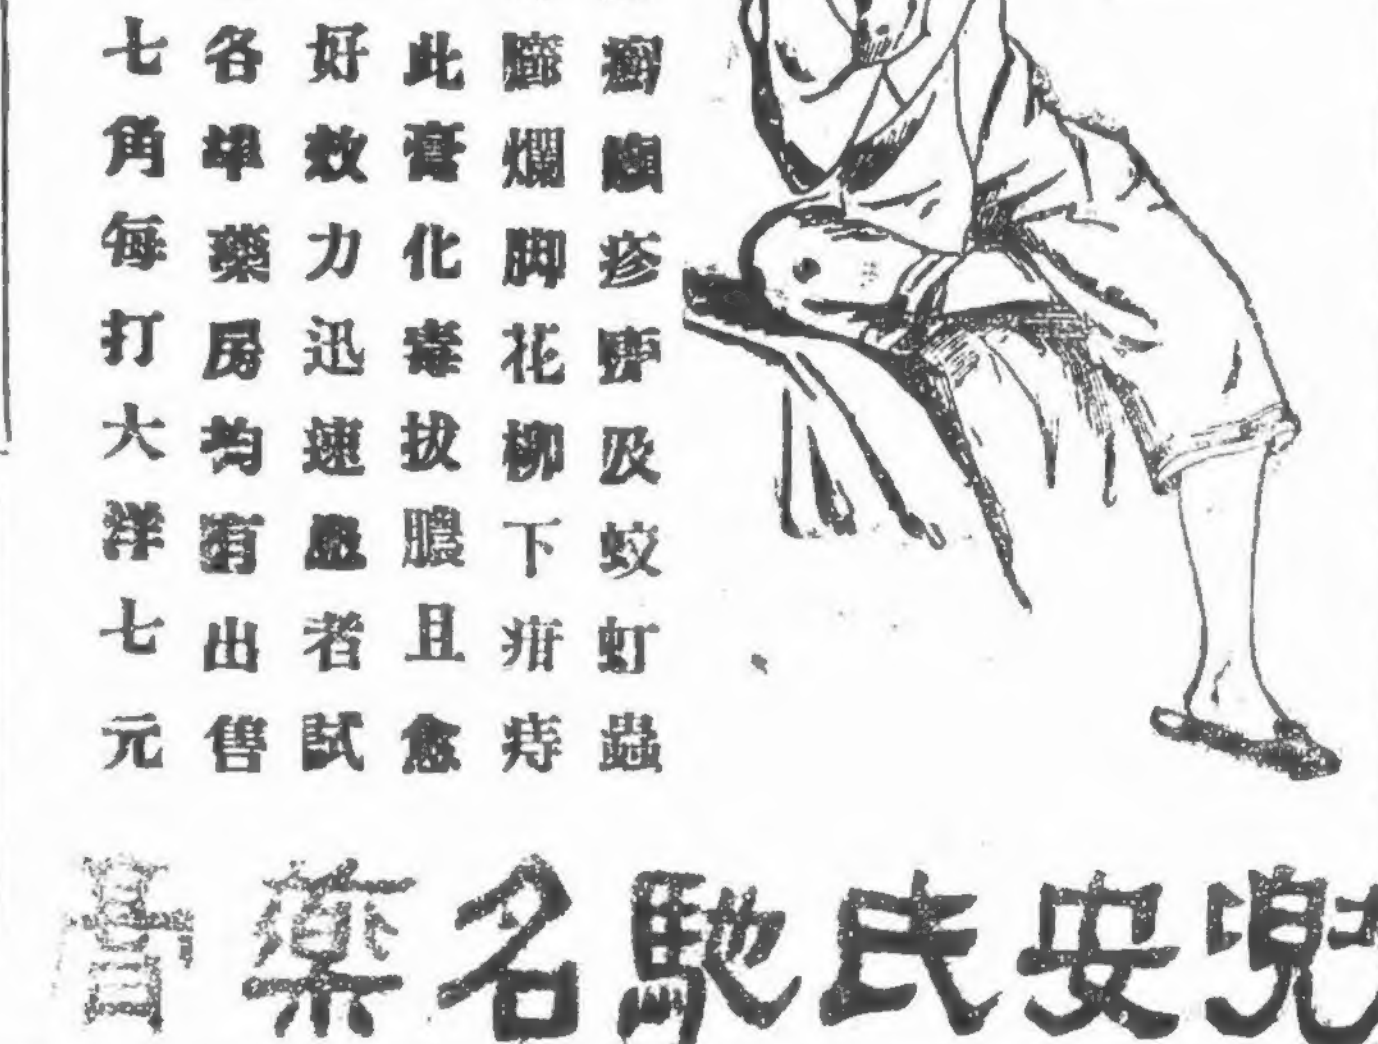 疹及蚊虰蟲
臁爛脚花柳下疳痔
此膏化毒拔膿且愈
好效力迅速患者試
各埠藥房均有出售
七角每打大洋七元
兜安氏馳名藥膏